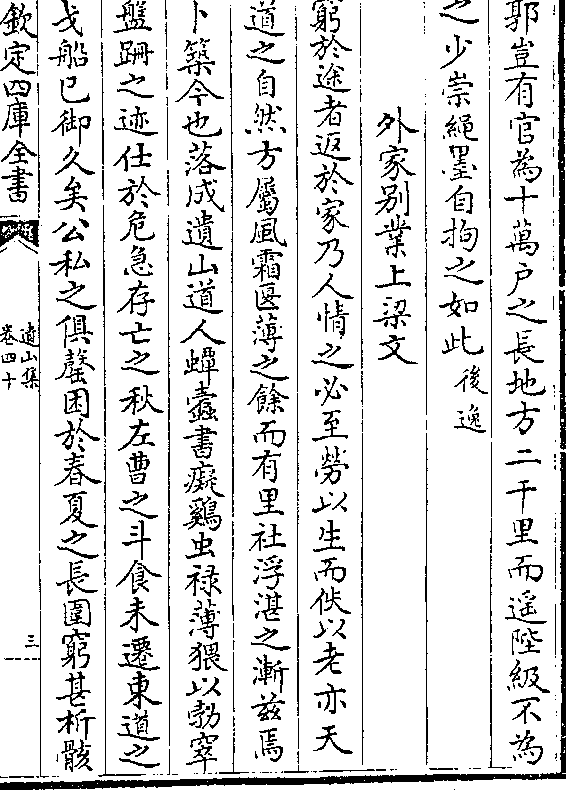 郭豈有官為十萬户之長地方二千里而遥陛級不為
之少崇繩墨自拘之如此後逸
外家别業上梁文
窮於途者返於家乃人情之必至勞以生而佚以老亦天
道之自然方屬風霜匽薄之餘而有里社浮湛之漸兹焉
卜築今也落成遺山道人蟫蠧書癡鷄虫禄薄猥以勃窣
盤跚之迹仕於危急存亡之秋左曹之斗食未遷東道之
戈船已御久矣公私之俱罄困於春夏之長圍窮甚析骸
欽定四庫全書
遺山集
卷四十
三